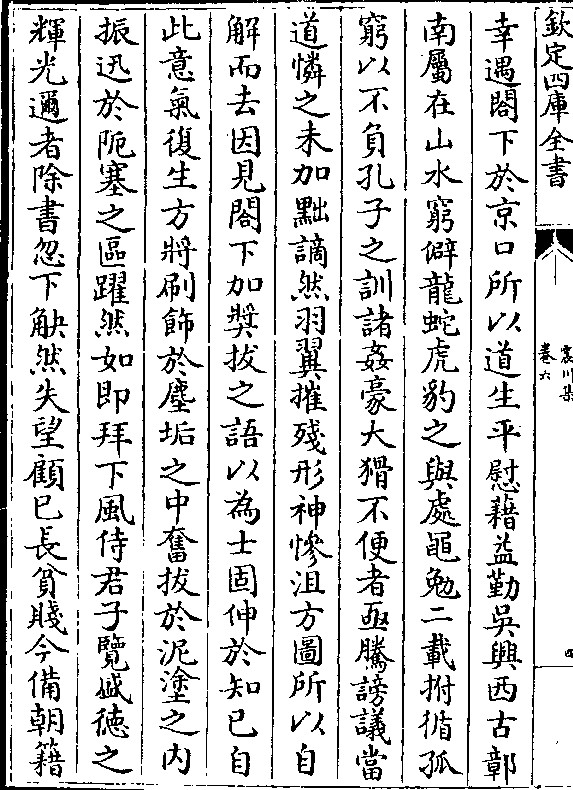 欽定四庫全書
震川集
卷六
四
幸遇閣下於京口所以道生平慰藉益勤吳興西古鄣
南屬在山水窮僻龍蛇虎豹之與處黽勉二載拊循孤
窮以不負孔子之訓諸姦豪大猾不便者亟騰謗議當
道憐之未加黜謫然羽翼摧殘形神慘沮方圖所以自
解而去因見閣下加奬拔之語以為士固伸於知已自
此意氣復生方將刷飾於塵垢之中奮拔於泥塗之内
振迅於阨塞之區躍然如即拜下風侍君子覽盛德之
輝光邇者除書忽下觖然失望顧已長貧賤今備朝籍